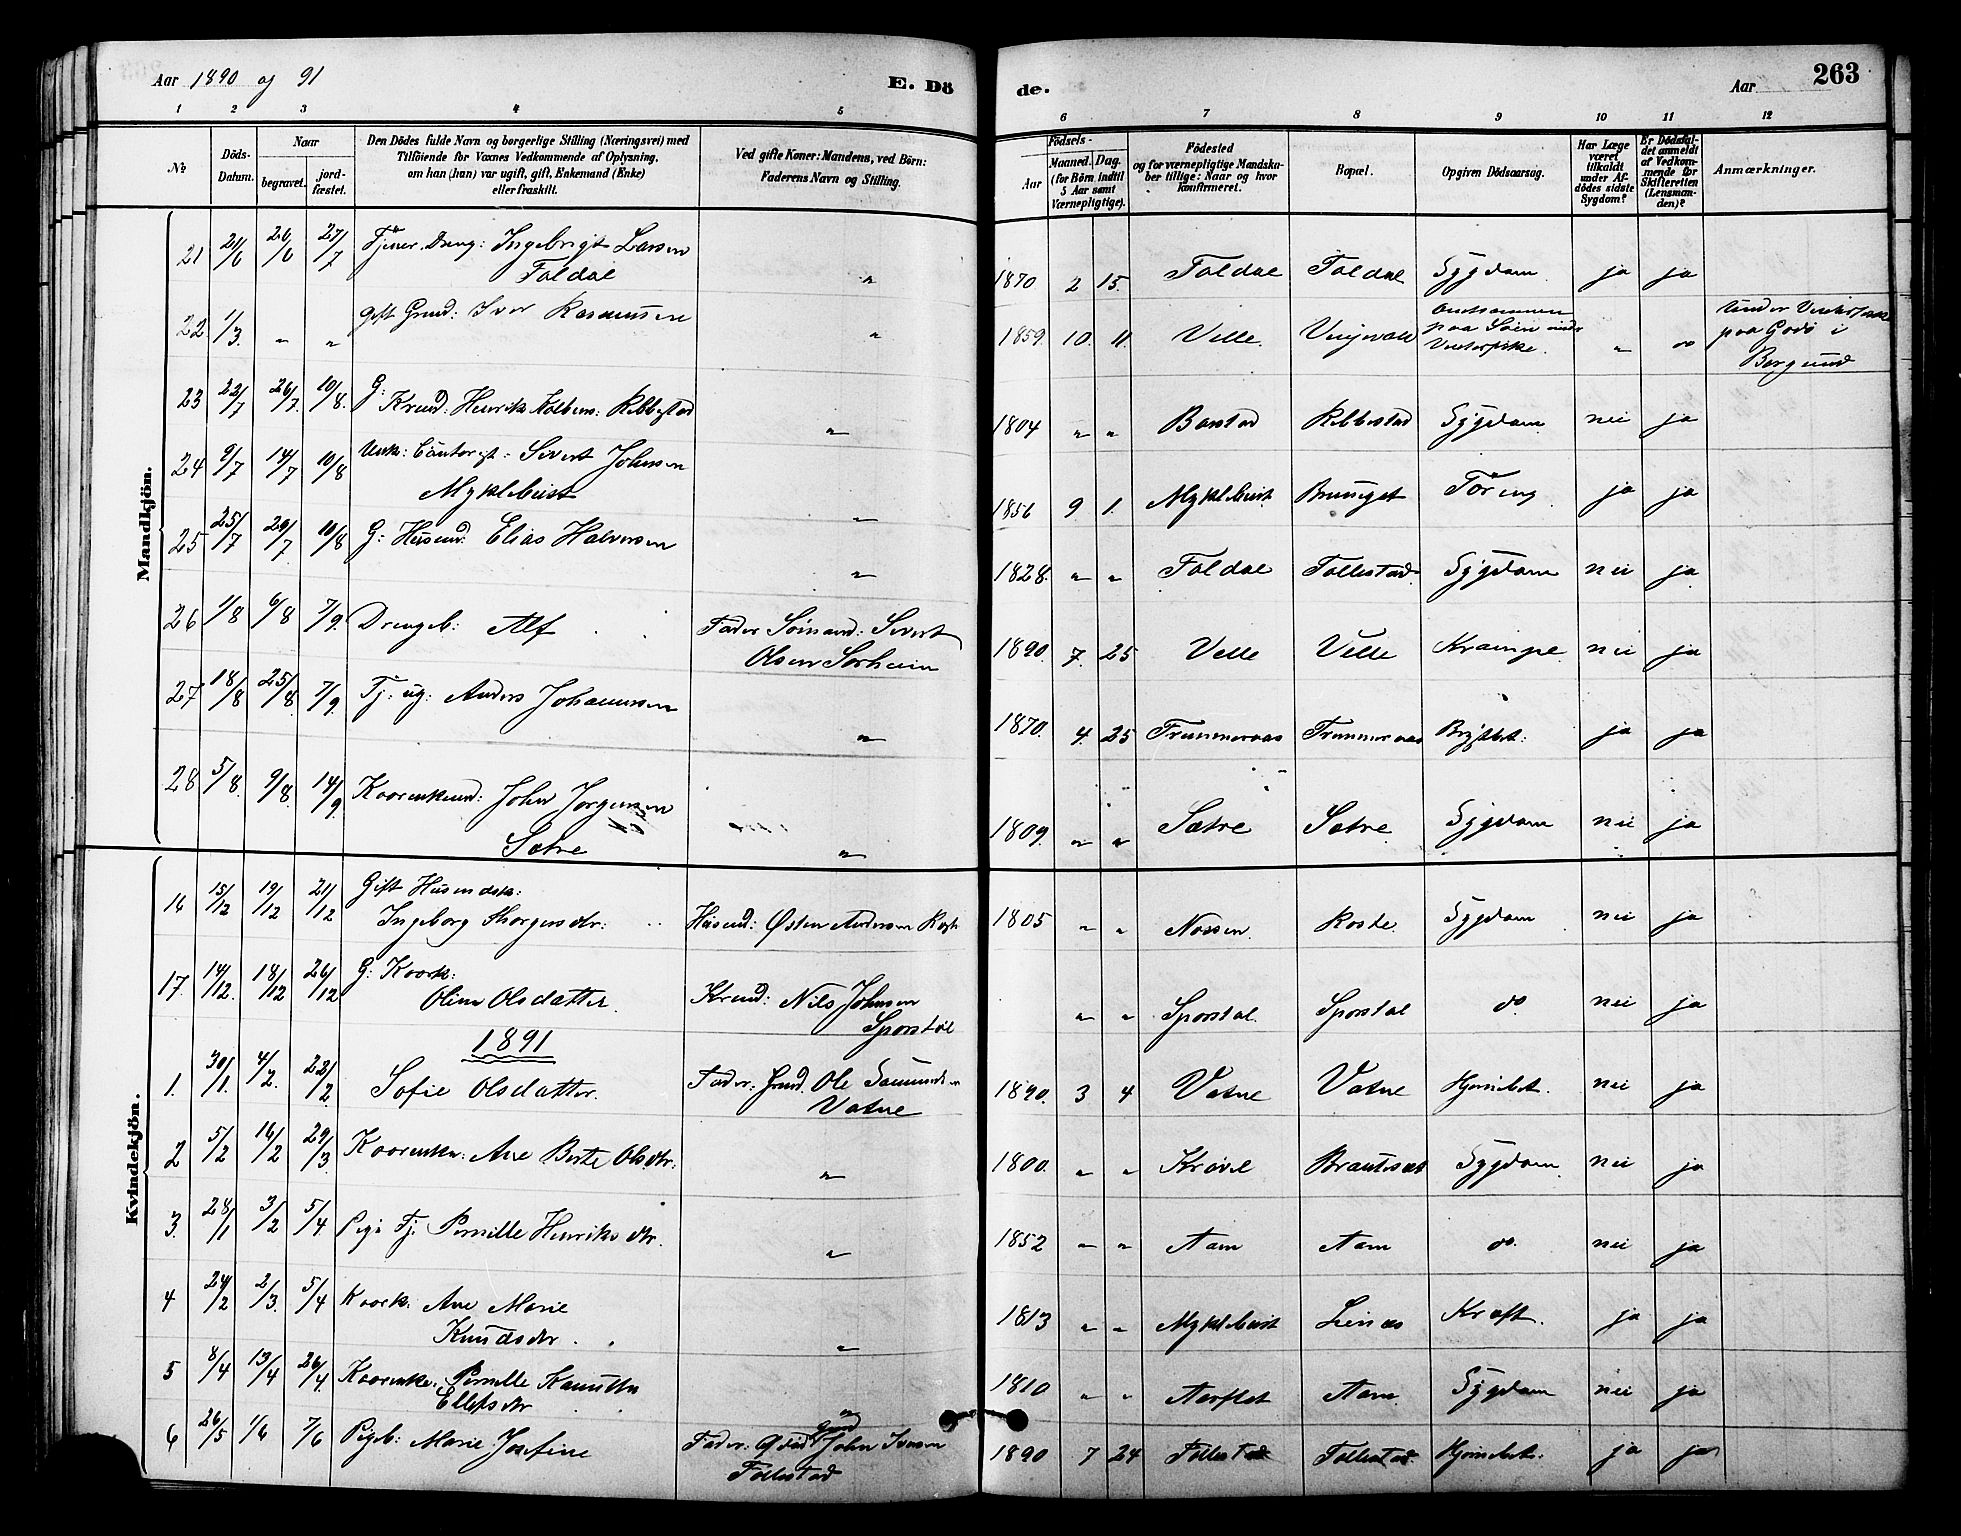 Aar 1890 og 91
E. Dö
de.
Aar
263
1 2 3 4 5 6 7 8 9 10 11 12
No
Döds-Datum.
Naar
begravet.
jordfæstet.
Den Dödes fulde Navn og borgerlige Stilling (Næringsvei) med
Tilföiende for Voxnes Vedkommende af Oplysning,
om han (hun) var ugift, gift, Enkemand (Enke)
eller fraskilt.
Ved gifte Koner: Mandens, ved Börn:
Faderens Navn og Stilling.
Födsels-
Aar
Maaned. Dag.
(for Börn indtil
5 Aar samt
Værnepligtige).
Födested
og for værnepligtige Mandskaber tillige: Naar og hvor
konfirmeret.
Bopæl.
Opgiven Dödsaarsag.
Har Læge
været
tilkaldt
under Afdödes sidste
Sygdom?
Er Dödsfaldet anmeldt
af Vedkommende for
Skifteretten
(Lensmanden)?
Anmærkninger.
Mandkjön.
21 21/6 26/6 27/7 Tjener. Dreng: Ingebrigt Larsen
Foldal " 1870 2 15. Foldal Foldal Sygdom ja ja
22 1/3. " " gift Grmd: Iver Rasmussen " 1859. 10. 11. Velle.
paa Søen under
Vinterfiske. " do
Under Vinterfiske
paa Godø i
Borgund
23 22/7 26/7. 10/8. G:
Krmd: Henrik Kolbens: Ribbestad " 1804 " " Barstad Ribbestad Sygdom nei ja
24 9/7 14/7 10/8 Sivert Johnsen
Myklebust " 1856 9. 1. Myklebust Tæring ja ja
25 25/7 29/7 10/8 G: Husmd. Elias Halvorsen " 1828. " " Foldal Follestad Sygdom nei ja
26 1/8 6/8 7/9. Drengeb: Alf Fader Sømand: Sivert
Olsen Sørheim 1890. 7. 25 Velle Velle Krampe nei ja
27 18/8 25/8. 7/9. Tj: ug: Anders Johannessen " 1870. 4. 25 Brystbet: ja ja
28 5/8. 9/8. 14/9 Kaarenkemd: John Jørgensen
Sætre " 1809. " " Sætre Sætre Sygdom nei ja
Kvindekjön.
16 15/12 19/12 21/12 Gift Husmdsk:
Ingeborg Thorgersdtr: Husmd: Østen Andersen 1805 " " Nossen. Koste. Sygdom nei ja
17. 14/12. 18/12 26/12 G: Kaark:
Oline Olsdatter. Krmd: Nils Johnsen
Sporstøl " " Sporstøl. Sporstøl do. nei ja
1891
1. 30/1. 4/2. 22/2. Sofie Olsdatter. Fader: Grmd. Ole
Vatne 1890. 3 4 Vatne Vatne Hjernebet. nei ja
2 5/2 16/2 29/3. Kaarenke: Ane Berte Olsdtr: " 1800. " " Krøvel Sygdom nei ja
3. 28/1 3/2 5/4 Pige Tj. Pernille Henriksdtr. " 1852 " " Aam Aam do. nei ja
4 24/2 2/3. 5/4 Kaark: Ane Marie
Knudsdtr. " 1813 " " Myklebust Kræft. ja ja
5 8/4 13/4 26/4. Kaarenke: Pernille
Ellefsdtr " 1810 " " Aarflot Aam Sygdom nei ja
6 26/5 1/6 7/6 Pigeb: Marie Josefine Fader: Grmd John Iversen
Follestad 1890 7 24 Follestad Follestad Hjernebet. ja ja